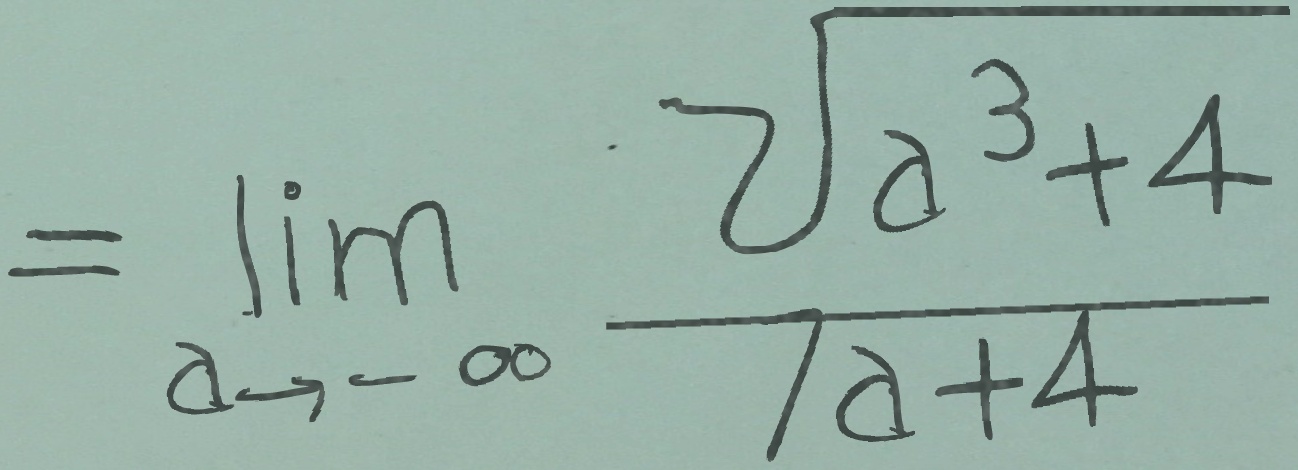 = \lim_{a \to -\infty} \frac{\sqrt{a^3+4}}{7a+4}